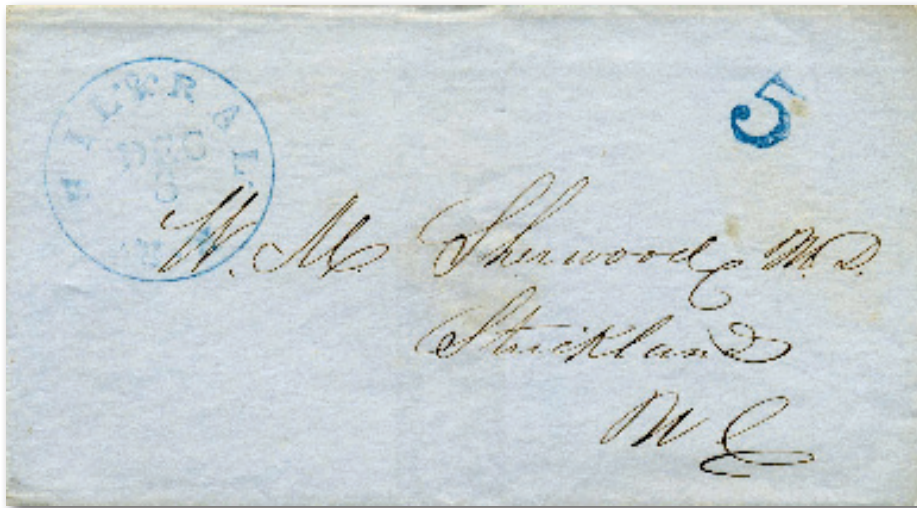 WIL & RAL
DEC
6
5
W. M. Sherwood, M.D.
Strickland
N C